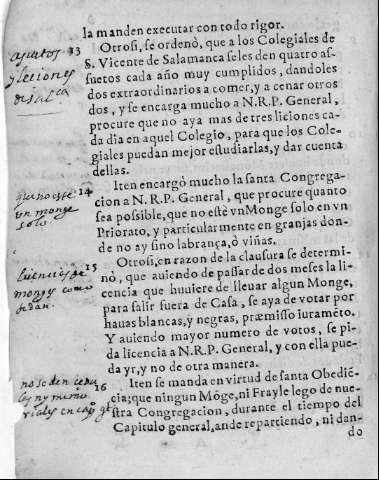 la manden executar con todo rigor.
13 Otrosi, se ordenò, que a los Colegiales de
S. Vicente de Salamanca seles den quatro as-
suetos cada año muy cumplidos, dandoles
dos extraordinarios a comer, y a cenar otros
dos, y se encarga mucho a N.R.P. General,
procure que no aya mas de tres liciones ca-
da dia en aquel Colegio, para que los Cole-
giales puedan mejor estudiarlas, y dar cuenta
dellas.
14 Iten encargò mucho la santa Congrega-
cion a N. R. P. General, que procure quanto
sea possible, que no estè vn Monge solo en vn
Priorato, y particularmente en granjas don-
de no ay sino labrança, ò viñas.
15 Otrosi, en razon de la clausura se determi-
nò, que auiendo de passar de dos meses la li-
cencia que huuiere de lleuar algun Monge,
para salir fuera de Casa, se aya de votar por
hauas blancas, y negras, præmisso iuramẽto.
Y auiendo mayor numero de votos, se pi-
da licencia a N.R.P. General, y con ella pue-
da yr, y no de otra manera.
16 Iten se manda en virtud de santa Obediẽ-
cia; que ningun Mõge, ni Frayle lego de nue-
stra Congregacion, durante el tiempo del
Capitulo general, ande repartiendo, ni dan-
do
asuetos
y leciones
que no este
vn monge
solo
licencias de
monges como
se dan.
no se den